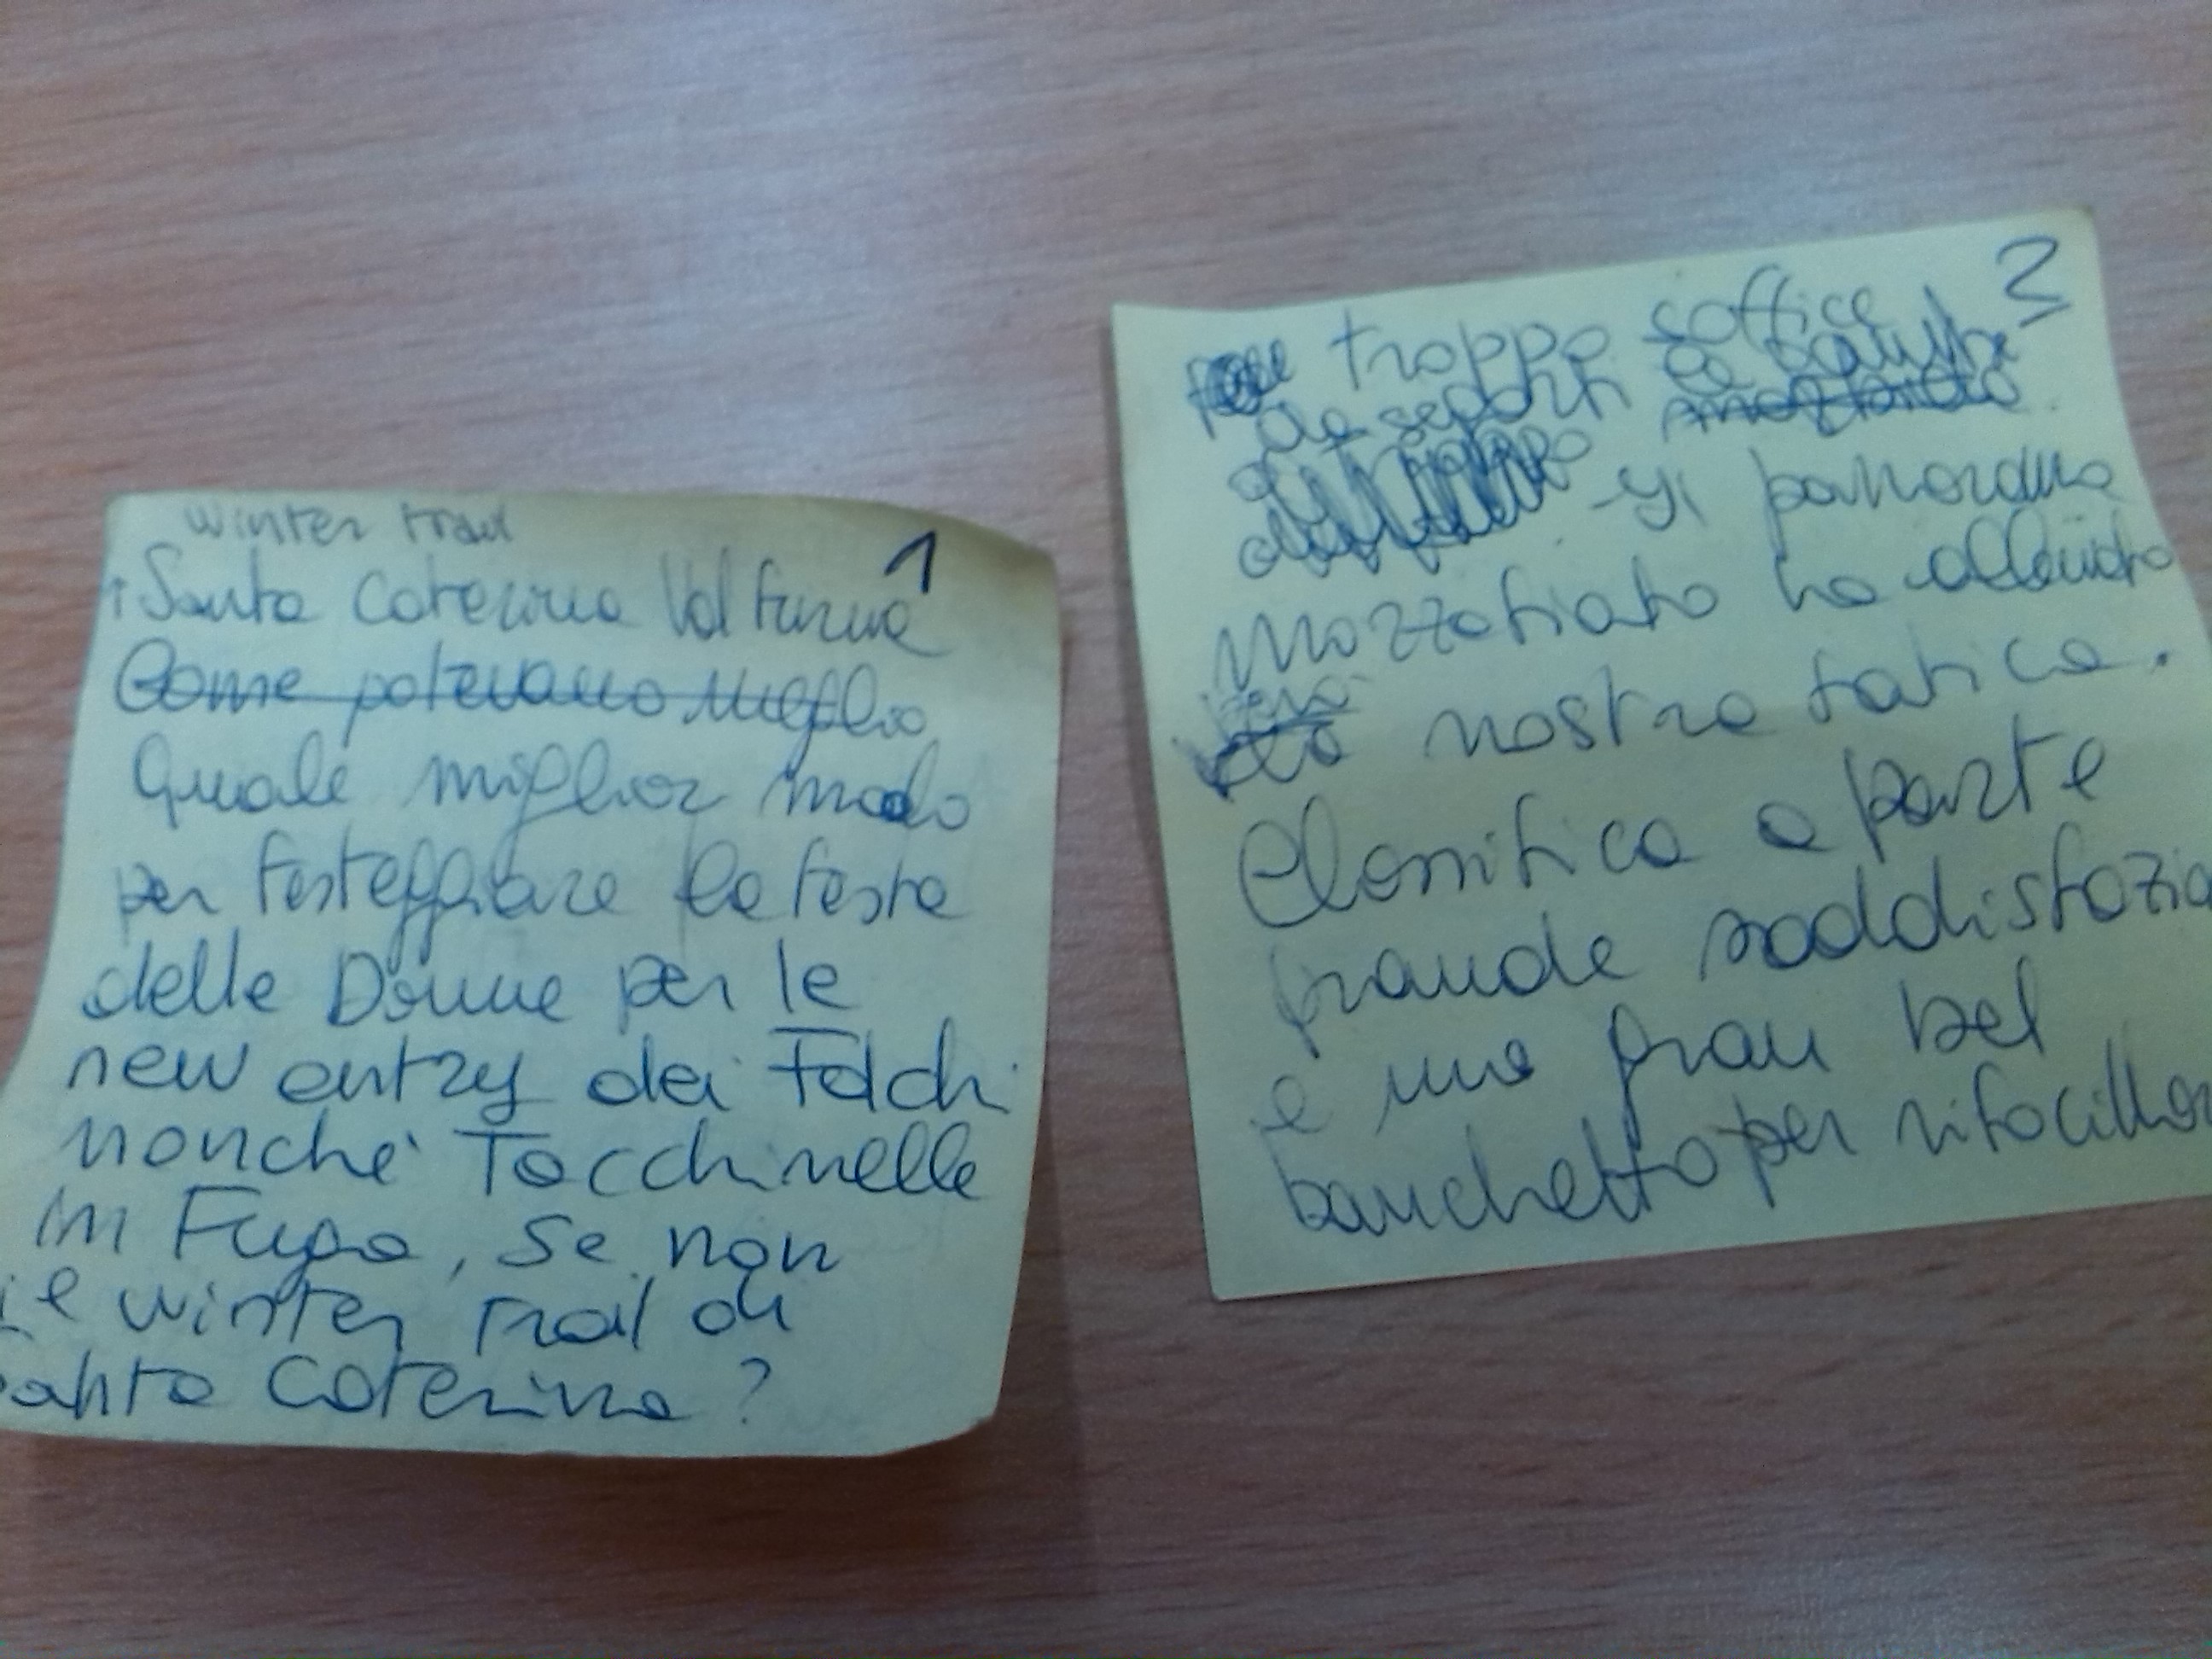 1
winter trail
Santa Caterina Valfurva
Come potevamo meglio
Quale miglior modo
per festeggiare la festa
delle Donne per le
new entry dei Falchi
nonché Tacchinelle
in Fuga, se non
il winter trail di
Santa Caterina?
2
troppo soffice
da sederci le gambe
mozzafiato
Il panorama
mozzafiato ha alleviato
nostra fatica.
Classifica a parte
grande soddisfazio
e una gran bel
banchetto per rifocillar